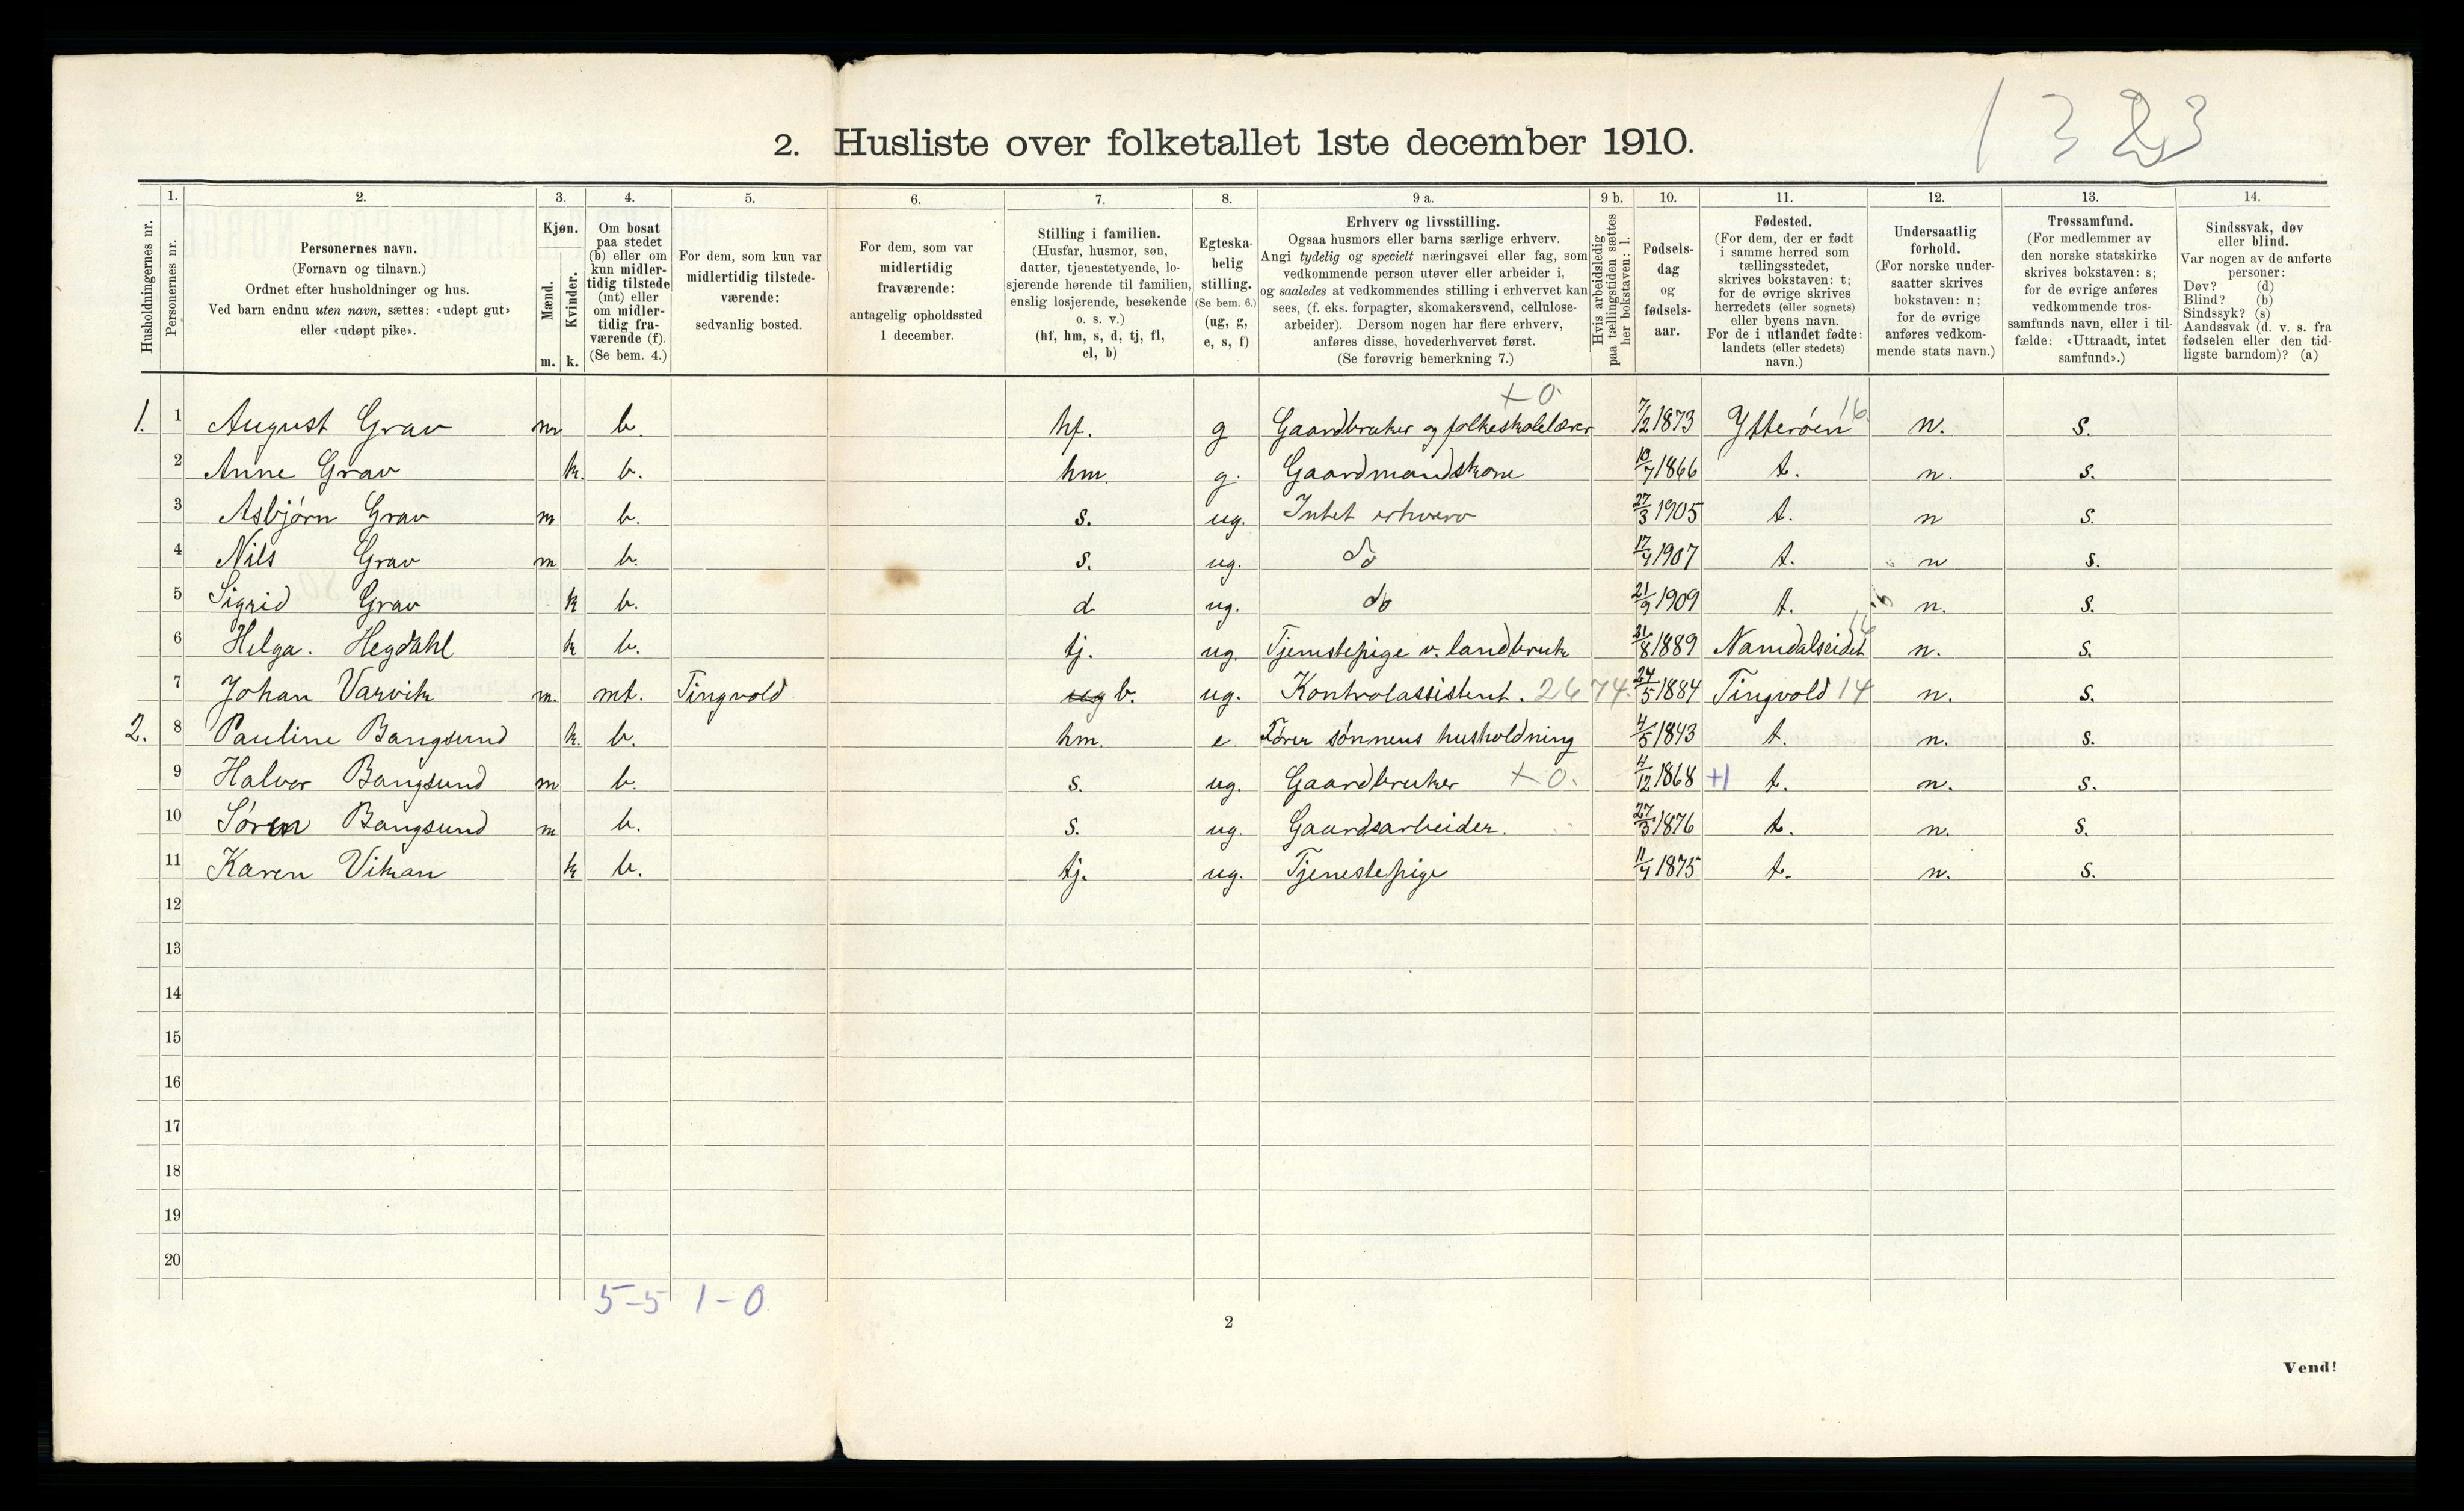 1323
2. Husliste over folketallet 1ste december 1910.
Husholdningernes nr.
1. Personernes nr.
2. Personernes navn. (Fornavn og tilnavn.) Ordnet efter husholdninger og hus. Ved barn endnu uten navn, sættes: «udøpt gut» eller «udøpt pike».
3. Kjøn. Mænd. m. Kvinder. k.
4. Om bosat paa stedet (b) eller om kun midlertidig tilstede (mt) eller om midlertidig fraværende (f). (Se bem. 4.)
5. For dem, som kun var midlertidig tilstedeværende: sedvanlig bosted.
6. For dem, som var midlertidig fraværende: antagelig opholdssted 1 december.
7. Stilling i familien. (Husfar, husmor, søn, datter, tjenestetyende, losjerende hørende til familien, enslig losjerende, besøkende o. s. v.) (hf, hm, s, d, tj, fl, el, b)
8. Egteskabelig stilling. (Se bem. 6.) (ug, g, e, s, f)
9 a. Erhverv og livsstilling. Ogsaa husmors eller barns særlige erhverv. Angi tydelig og specielt næringsvei eller fag, som vedkommende person utøver eller arbeider i, og saaledes at vedkommendes stilling i erhvervet kan sees, (f. eks. forpagter, skomakersvend, cellulosearbeider). Dersom nogen har flere erhverv, anføres disse, hovederhvervet først. (Se forøvrig bemerkning 7.)
9 b. Hvis arbeidsledig paa tællingstiden sættes her bokstaven: l.
10. Fødselsdag og fødselsaar.
11. Fødested. (For dem, der er født i samme herred som tællingsstedet, skrives bokstaven: t; for de øvrige skrives herredets (eller sognets) eller byens navn. For de i utlandet fødte: landets (eller stedets) navn.)
12. Undersaatlig forhold. (For norske undersaatter skrives bokstaven: n; for de øvrige anføres vedkommende stats navn.)
13. Trossamfund. (For medlemmer av den norske statskirke skrives bokstaven: s; for de øvrige anføres vedkommende trossamfunds navn, eller i tilfælde: «Uttraadt, intet samfund».)
14. Sindssvak, døv eller blind. Var nogen av de anførte personer: Døv? (d) Blind? (b) Sindssyk? (s) Aandssvak (d. v. s. fra fødselen eller den tidligste barndom)? (a)
+0.
1. 1 August Grav m b. hf. g Gaardbruker og folkeskolelærer 7/12 1873 Ytterøen 16. n. s.
2 Anne Grav k. b. hm. g. Gaardmandskone 10/7 1866 t. n. s.
3 Asbjørn Grav m b. s. ug. Intet erhverv 27/3 1905 t. n s.
4 Nils Grav m b. s. ug. do 17/4 1907 t. n s.
5 Sigrid Grav k b. d ug. do 21/9 1909 t. n. s.
6 Helga. Hegdahl k b. tj. ug. Tjenestepige v. landbruk 31/8 1889 Namdalseidet n. s.
7 Johan Varvik m. mt. Tingvold ug b. ug. Kontrolassistent. 2674. 24/5 1884 Tingvold 14 n. s.
2. 8 Pauline Bangsund k. b. hm. e. Fører sønnens husholdning 4/5 1843 t. n. s.
9 Halvor Bangsund m b. s. ug. Gaardbruker +0. 4/12 1868 +1 t. n. s.
10 Søren Bangsund m b. s. ug. Gaardsarbeider. 27/3 1876 t. n. s.
11 Karen Vikan k b. tj. ug. Tjenestepige 11/4 1875 t. n. s.
12
13
14
15
16
17
18
19
20
5-5 1-0
2
Vend!